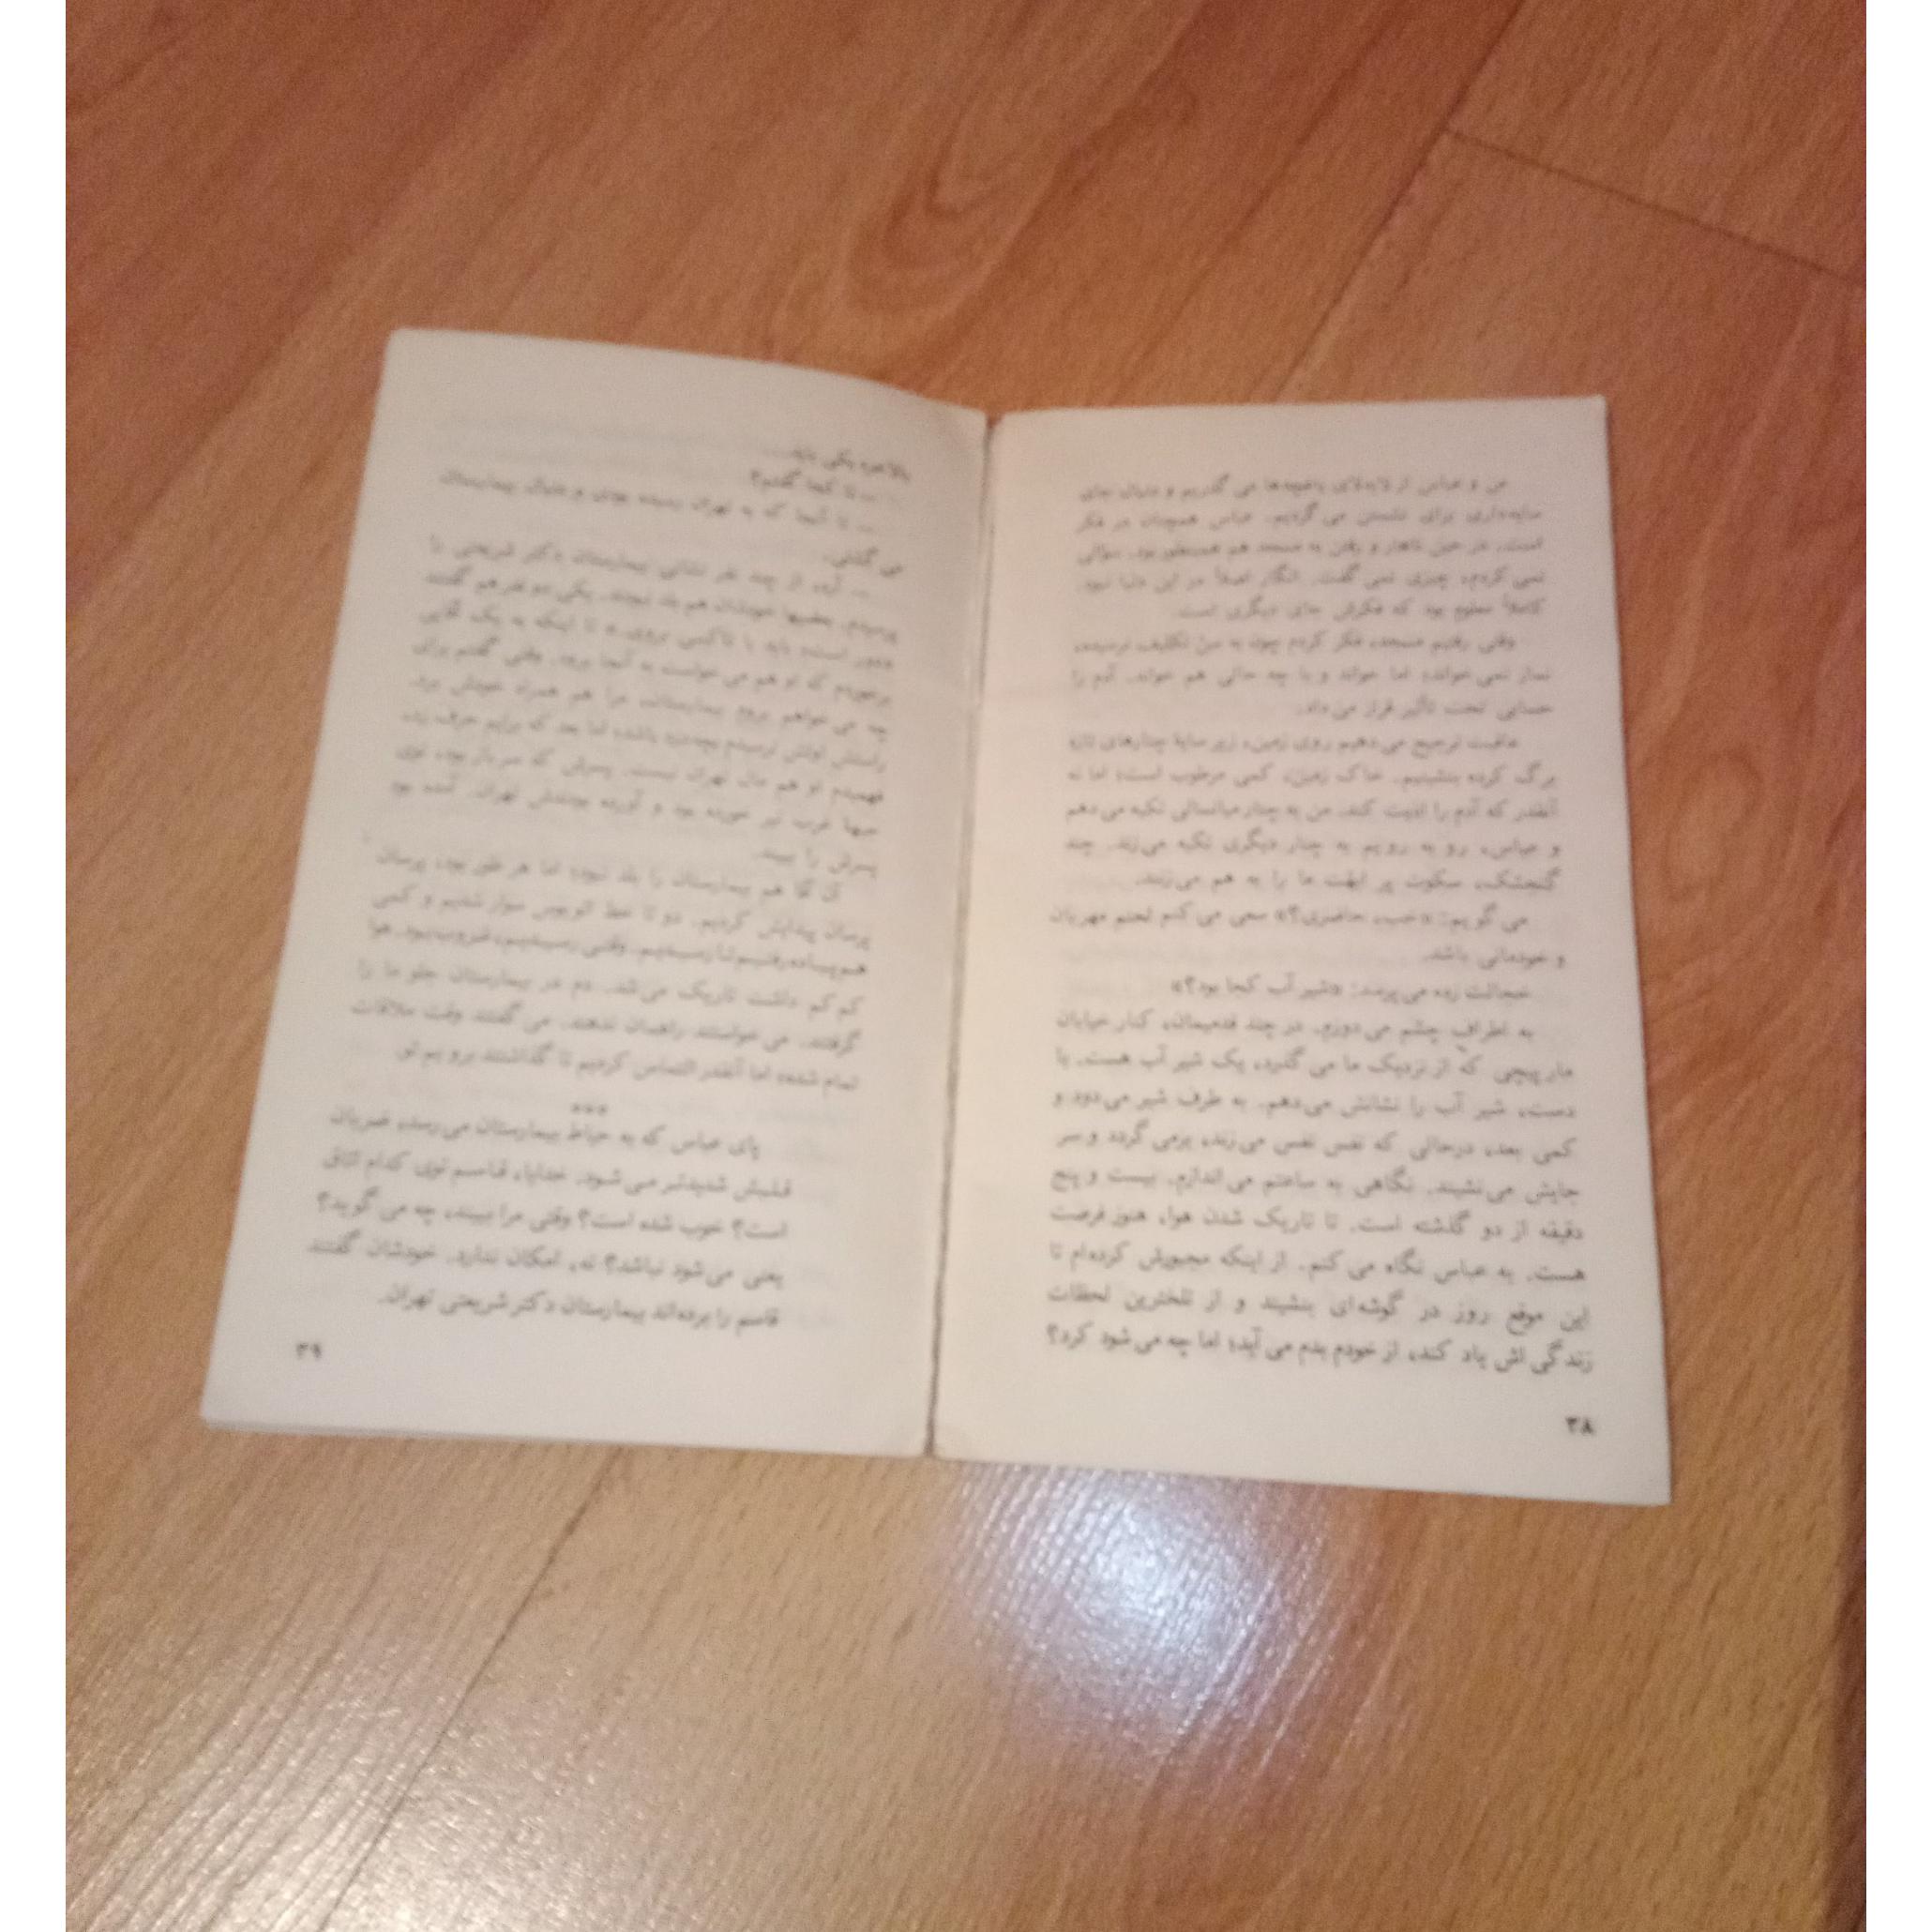 من و عباس از لابه‌لای باغچه‌ها می گذریم و دنبال جای
سایه‌داری برای نشستن می گردیم. عباس همچنان در فکر
است. در حین ناهار و رفتن به مسجد هم همینطور بود. سؤالی
نمی کردم، چیزی نمی گفت. انگار اصلاً در این دنیا نبود.
کاملاً معلوم بود که فکرش جای دیگری است.
وقتی رفتیم مسجد، فکر کردم چون به سنّ تکلیف نرسیده،
نماز نمی خواند؛ اما خواند و با چه حالی هم خواند. آدم را
حسابی تحت تأثیر قرار می داد.
عاقبت ترجیح می دهیم روی زمین، زیر سایهٔ چنارهای تازه
برگ کرده بنشینیم. خاک زمین، کمی مرطوب است؛ اما نه
آنقدر که آدم را اذیت کند. من به چنار میانسالی تکیه می دهم
و عباس، رو به رویم به چنار دیگری تکیه می زند. چند
گنجشک، سکوت پر ابهّت ما را به هم می زنند.
می گویم: «خب، حاضری؟» سعی می کنم لحنم مهربان
و خودمانی باشد.
خجالت زده می پرسد: «شیر آب کجا بود؟»
به اطراف چشم می دوزم. در چند قدمیمان، کنار خیابان
مارپیچی که از نزدیک ما می گذرد، یک شیر آب هست. با
دست، شیر آب را نشانش می دهم. به طرف شیر می دود و
کمی بعد، درحالی که نفس نفس می زند، برمی گردد و سر
جایش می نشیند. نگاهی به ساعتم می اندازم. بیست و پنج
دقیقه از دو گذشته است. تا تاریک شدن هوا، هنوز فرصت
هست. به عباس نگاه می کنم. از اینکه مجبورش کرده‌ام تا
این موقع روز در گوشه‌ای بنشیند و از تلخترین لحظات
زندگی اش یاد کند، از خودم بدم می آید؛ اما چه می شود کرد؟
۳۸
بالاخره یکی باید...
— تا کجا گفتم؟
— تا آنجا که به تهران رسیده بودی و دنبال بیمارستان
می گشتی.
— آره. از چند نفر نشانی بیمارستان دکتر شریعتی را
پرسیدم. بعضیها خودشان هم بلد نبودند. یکی دو نفر هم گفتند
«دور است؛ باید با تاکسی بروی.» تا اینکه به یک آقایی
برخوردم که او هم می خواست به آنجا برود. وقتی گفتم برای
چه می خواهم بروم بیمارستان، مرا هم همراه خودش برد.
راستش اولش ترسیدم بچه‌دزد باشد؛ اما بعد که برایم حرف زد،
فهمیدم او هم مال تهران نیست. پسرش که سرباز بود، توی
جبههٔ غرب تیر خورده بود و آورده بودندش تهران. آمده بود
پسرش را ببیند.
آن آقا هم بیمارستان را بلد نبود؛ اما هر طور بود، پرسان
پرسان پیدایش کردیم. دو تا خط اتوبوس سوار شدیم و کمی
هم پیاده رفتیم تا رسیدیم. وقتی رسیدیم، غروب بود. هوا
کم کم داشت تاریک می شد. دم در بیمارستان جلو ما را
گرفتند. می خواستند راهمان ندهند. می گفتند وقت ملاقات
تمام شده؛ اما آنقدر التماس کردیم تا گذاشتند برویم تو.
***
پای عباس که به حیاط بیمارستان می رسد، ضربان
قلبش شدیدتر می شود. خدایا، قاسم توی کدام اتاق
است؟ خوب شده است؟ وقتی مرا ببیند، چه می گوید؟
یعنی می شود نباشد؟ نه، امکان ندارد. خودشان گفتند
قاسم را برده‌اند بیمارستان دکتر شریعتی تهران.
۳۹